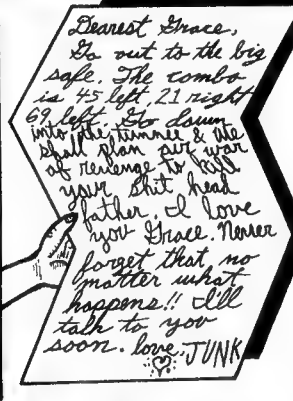 Dearest Grace,
Go out to the big
safe. The combo
is 45 left, 21 right
69 left. Go down
into the tunnel & We
shall plan our war
of revenge to kill
your shit head
father. I love
you Grace. Never
forget that, no
matter what
happens!! I'll
talk to you
soon. love, JUNK